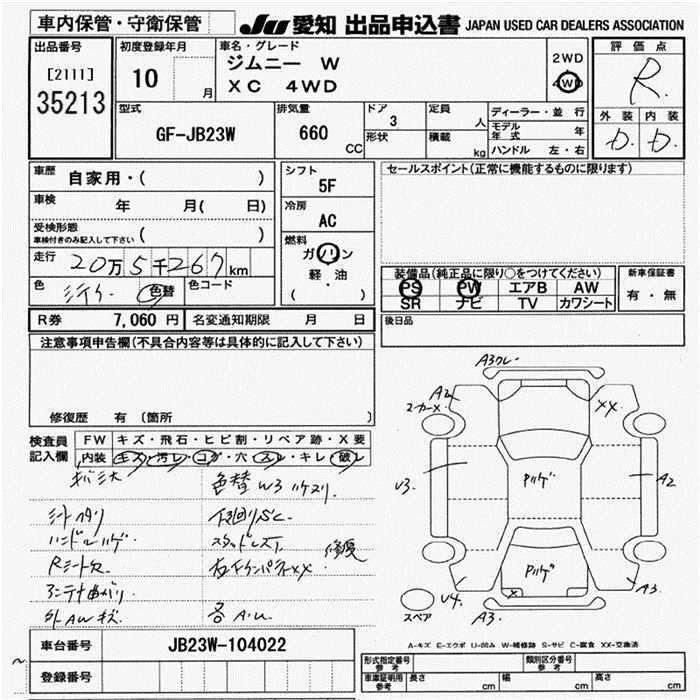 車内保管・守衛保管
JU 愛知 出品申込書 JAPAN USED CAR DEALERS ASSOCIATION
出品番号
[2111]
35213
初度登録年月
10 月
車名・グレード
ジムニー W
XC 4WD
2WD
4WD
評価点
R
外装 内装
D. D.
型式
GF-JB23W
排気量
660 CC
ドア
3
形状
定員 人
積載 kg
ディーラー・並行
モデル年式 年
ハンドル 左・右
車歴 自家用・( )
車検 年 月( 日)
受検形態
車検付きのみ記入して下さい ( )
走行 20万5千267km
色 色替
色コード
シフト
5F
冷房
AC
燃料
ガソリン
軽・油
( )
セールスポイント(正常に機能するものに限ります)
装備品(純正品に限り○をつけてください)
PS PW エアB AW
SR ナビ TV カワシート
新車保証書
有・無
R券 7,060 円
名変通知期限 月 日
後日品
注意事項申告欄(不具合内容等は具体的に記入して下さい)
修復歴 有(箇所 )
検査員記入欄
FW キズ・飛石・ヒビ割・リペア跡・X要
内装 キズ・汚レ・コゲ・穴・スレ・キレ・破レ
色替 W3
シートヘタリ
ハンドルハゲ
スタッドレス
Rシート欠
XX
修復
アンテナ曲がり
外AWキズ
各A.U.
A3
A2
2カーメ
XX
V3.
Pハゲ
A2
Pハゲ
V4.
A3.
A3.
スペア
A-キズ E-エクボ U-凹み W-補修跡 S-サビ C-腐食 XX-交換済
車台番号 JB23W-104022
登録番号
形式指定番号 参考
類別区分番号 参考
車庫証明用 参考
長さ cm
幅 cm
高さ cm